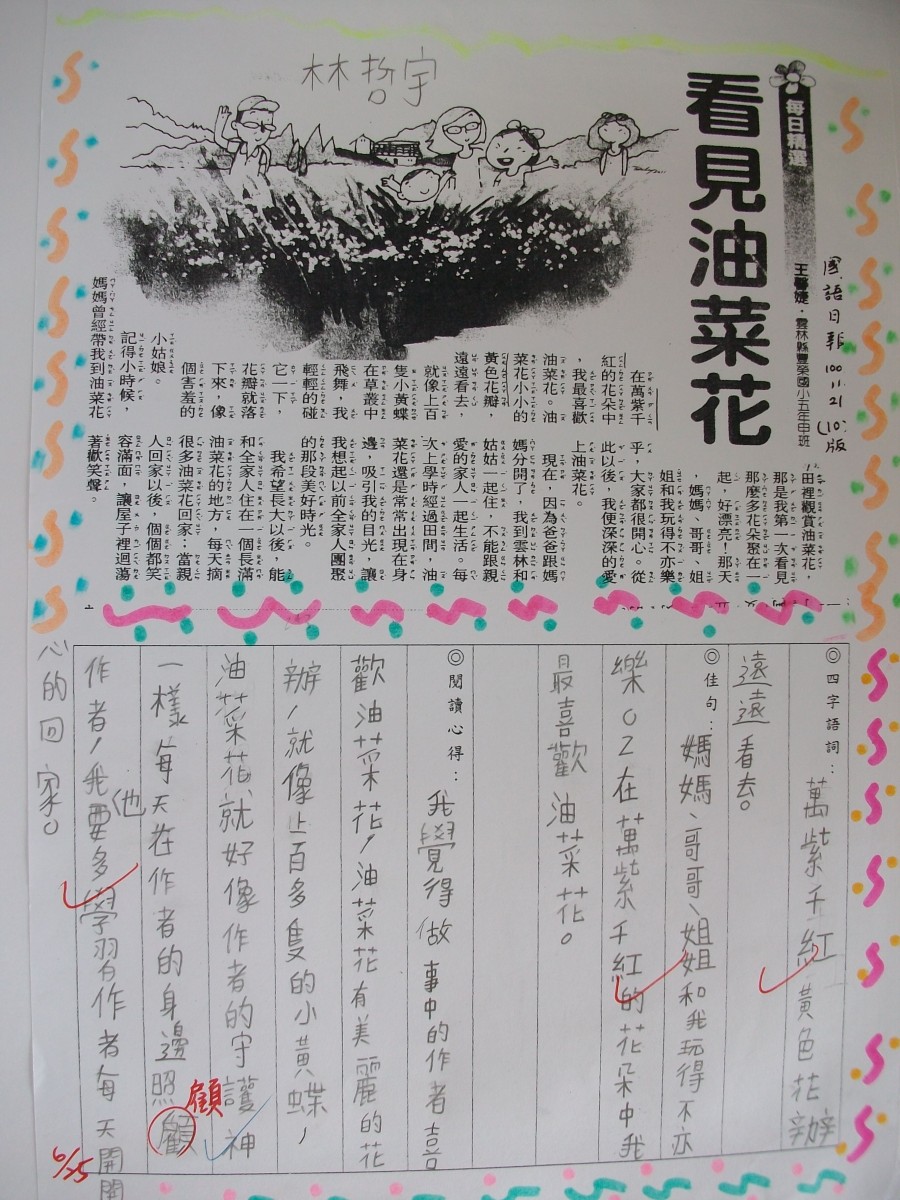 林哲宇
每日精選
看見油菜花
王馨婕・雲林縣豐榮國小五年甲班
國語日報 100.11.21 (10)版
在萬紫千
紅的花朵中
，我最喜歡
油菜花。油
菜花小小的
黃色花瓣，
遠遠看去，
就像上百
隻小黃蝶
在草叢中
飛舞，我
輕輕的碰
它一下，
花瓣就落
下來，像
個害羞的
小姑娘。
記得小時候，
媽媽曾經帶我到油菜花
田裡觀賞油菜花，
那是我第一次看見
那麼多花朵聚在一
起，好漂亮！那天
，媽媽、哥哥、姐
姐和我玩得不亦樂
乎，大家都很開心。從
此以後，我便深深的愛
上油菜花。
現在，因為爸爸跟媽
媽分開了，我到雲林和
姑姑一起住，不能跟親
愛的家人一起生活。每
次上學時經過田間，油
菜花還是常常出現在身
邊，吸引我的目光，讓
我想起以前全家人團聚
的那段美好時光。
我希望長大以後，能
和全家人住在一個長滿
油菜花的地方，每天摘
很多油菜花回家；當親
人回家以後，個個都笑
容滿面，讓屋子裡迴蕩
著歡笑聲。
◎四字語詞：萬紫千紅 黃色花辦
遠遠看去。
◎佳句：媽媽、哥哥、姐姐和我玩得不亦
樂。2在萬紫千紅的花朵中我
最喜歡油菜花。
◎閱讀心得：我覺得做事中的作者喜
歡油菜花，油菜花有美麗的花
辦，就像上百多隻的小黃蝶，
油菜花就好像作者的守護神
一樣，每天在作者的身邊照顧
顧
他
作者，我要多學習作者每天開開
心的回家。
6/25